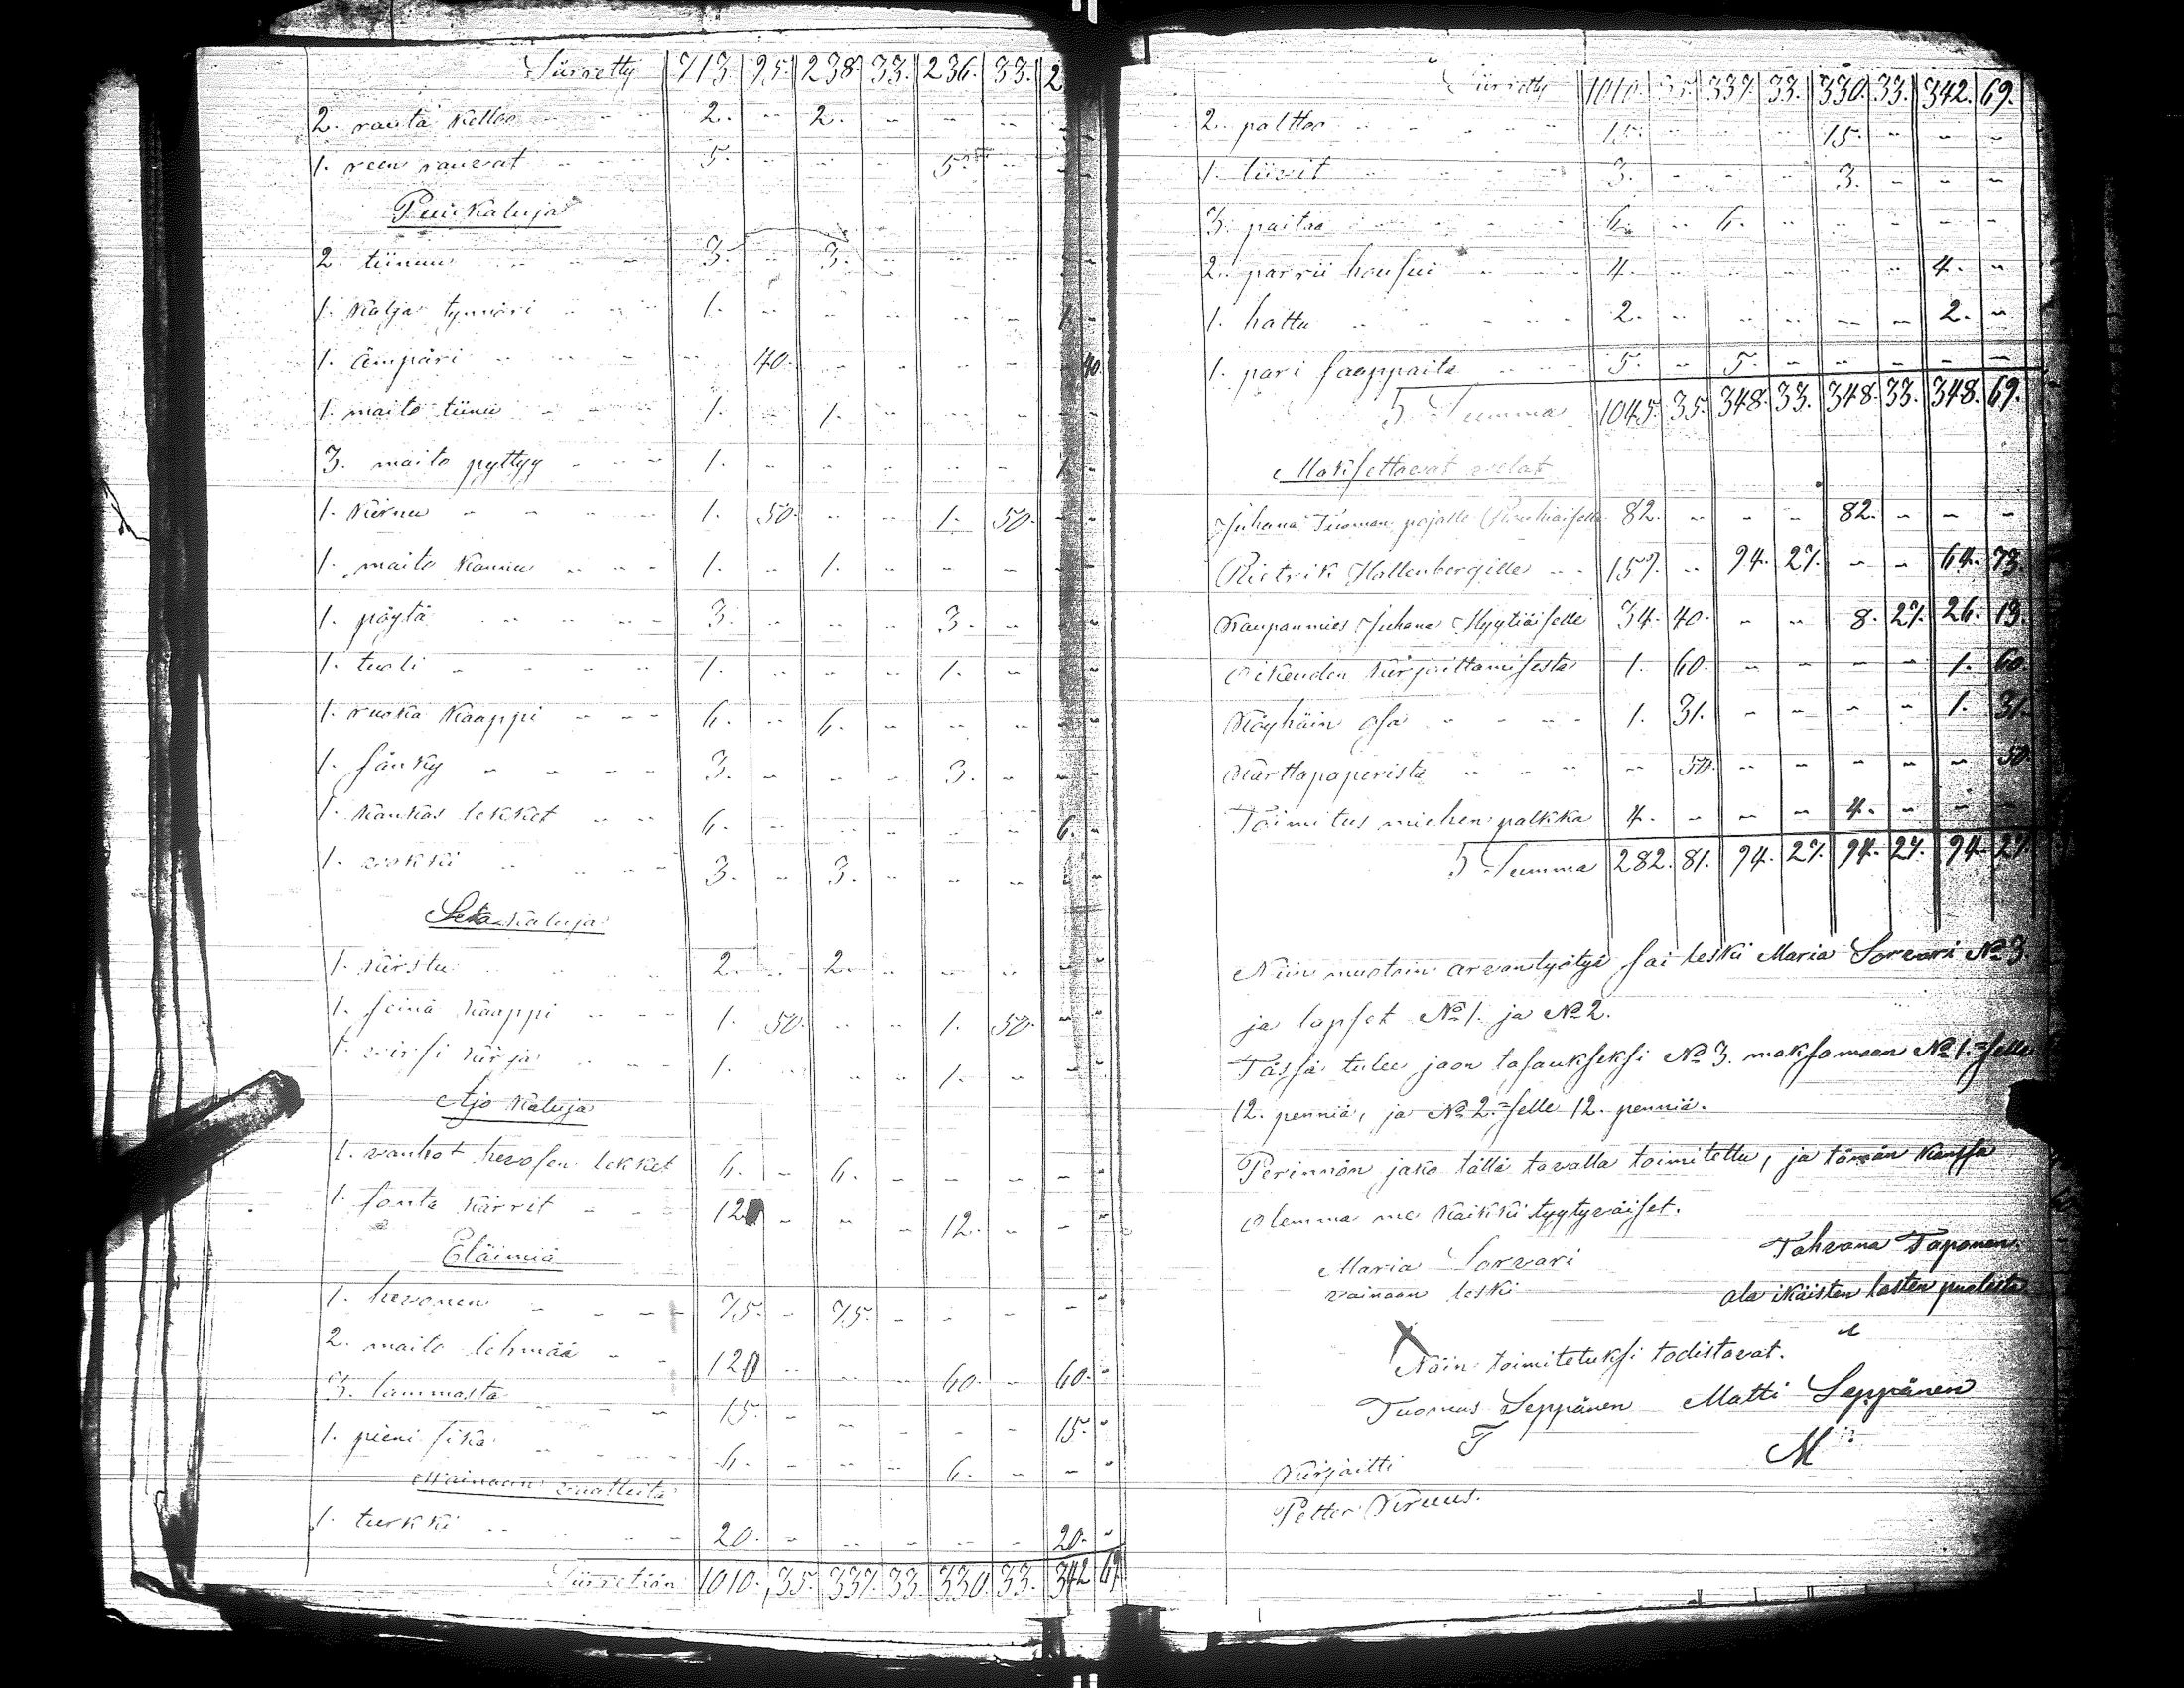 Siirretty 713. 95. 238. 33. 236. 33. 2
2. rauta kelloo 2. " 2. " " "
1. reen raudat 5. " " " 5. "
Puukaluja
2. tiinuu 3. " 3. " " "
1. kalja tynnöri 1. " " " " " 1. "
1. ämpäri " 40. " " " " " 40.
1. maito tiinu 1. " 1. " " " " "
3. maito pyttyy 1. " " " " " 1 "
1. kiirnu 1. 50. " " 1. 50. " "
1. maito kannu 1. " 1. " " " " "
1. pöytä 3. " " " 3. " " "
1. tuoli 1. " " " 1. " " "
1. ruoka kaappi 6. " 6. " " " " "
1. sänky 3. " " " 3. " " "
1. kankas lekket 6. " " " " " 6. "
1. vokki 3. " 3. " " " " "
Sekakaluja
1. kirstu 2. " 2. " " " " "
1. seinä kaappi 1. 50. " " 1. 50. " "
1. virsi kirja 1. " " " 1. " " "
Ajo kaluja
1. vanhat hevosen lekket 6. " 6. " " " " "
1. kärrit 12 " " " 12. " " "
Eläimiä
1. hevonen 75. " 75. " " " " "
2. maito lehmää 120 " " " 60. " 60. "
3. lammasta 15. " " " " " 15. "
1. pieni sika 6. " " " 6. " " "
Wainaan vaatteita
1. turkki 20. " " " " " 20. "
Siirretään 1010. 35. 337. 33. 330. 33. 342 69
Siirretty 1010. 35. 337. 33. 330. 33. 342. 69.
2. palttoo 15. " " " 15. " " "
1. liivit 3. " " " 3. " " "
3. paitaa 6. " 6. " " " " "
2. parrii housui 4. " " " " " 4. "
1. hattu 2. " " " " " 2. "
1. pari saappaita 5. " 5. " " " " "
Summa 1045. 35. 348. 33. 348. 33. 348. 69.
Maksettavat velat
Juhana Tuoman pojalle 82. " " " 82. " " "
Rietrik Hallenbergille 157. " 94. 27. " " 64. 73.
Kaupanmies Juhana Hyytiäiselle 34. 40. " " 8. 27. 26. 13.
Oikeuden kirjoittamisesta 1. 60. " " " " 1. 60
Köyhäin osa 1. 31. " " " " 1. 31.
Karttapaperista " 50. " " " " " 50
Toimitus miehen palkka 4. " " " 4. " " "
Summa 282. 81. 94. 27. 94. 27. 94. 27.
Niin muotoin arvontyötyi sai leski Maria Sorvari No 3.
ja lapset No 1. ja No 2.
Tässä tulee jaon tasaukseksi No 3. maksamaan No 1.=selle
12. penniä, ja No 2.=selle 12. penniä.
Perinnön jako tällä tavalla toimitettu, ja tämän kanssa
olemma me kaikki tyytyväiset.
Maria Sorvari Tahvana Taponen
vainaan leski ala ikäisten lasten puolesta
X
Näin toimitetuksi todistavat.
Tuomas Seppänen Matti Seppänen
T M
Kirjoitti
Petter Kruus.